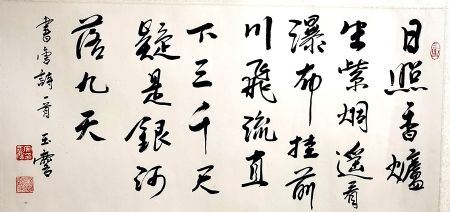 日照香爐
生紫烟遙看
瀑布挂前
川飛流直
下三千尺
疑是銀河
落九天
書 詩一首 玉